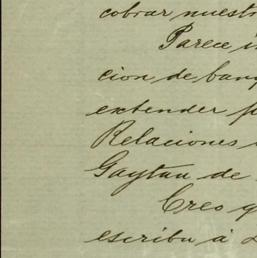 cobrar nuestr
Parece i
cion de banq
extender p
Relaciones
Gaytan de
Creo q
escribu á L